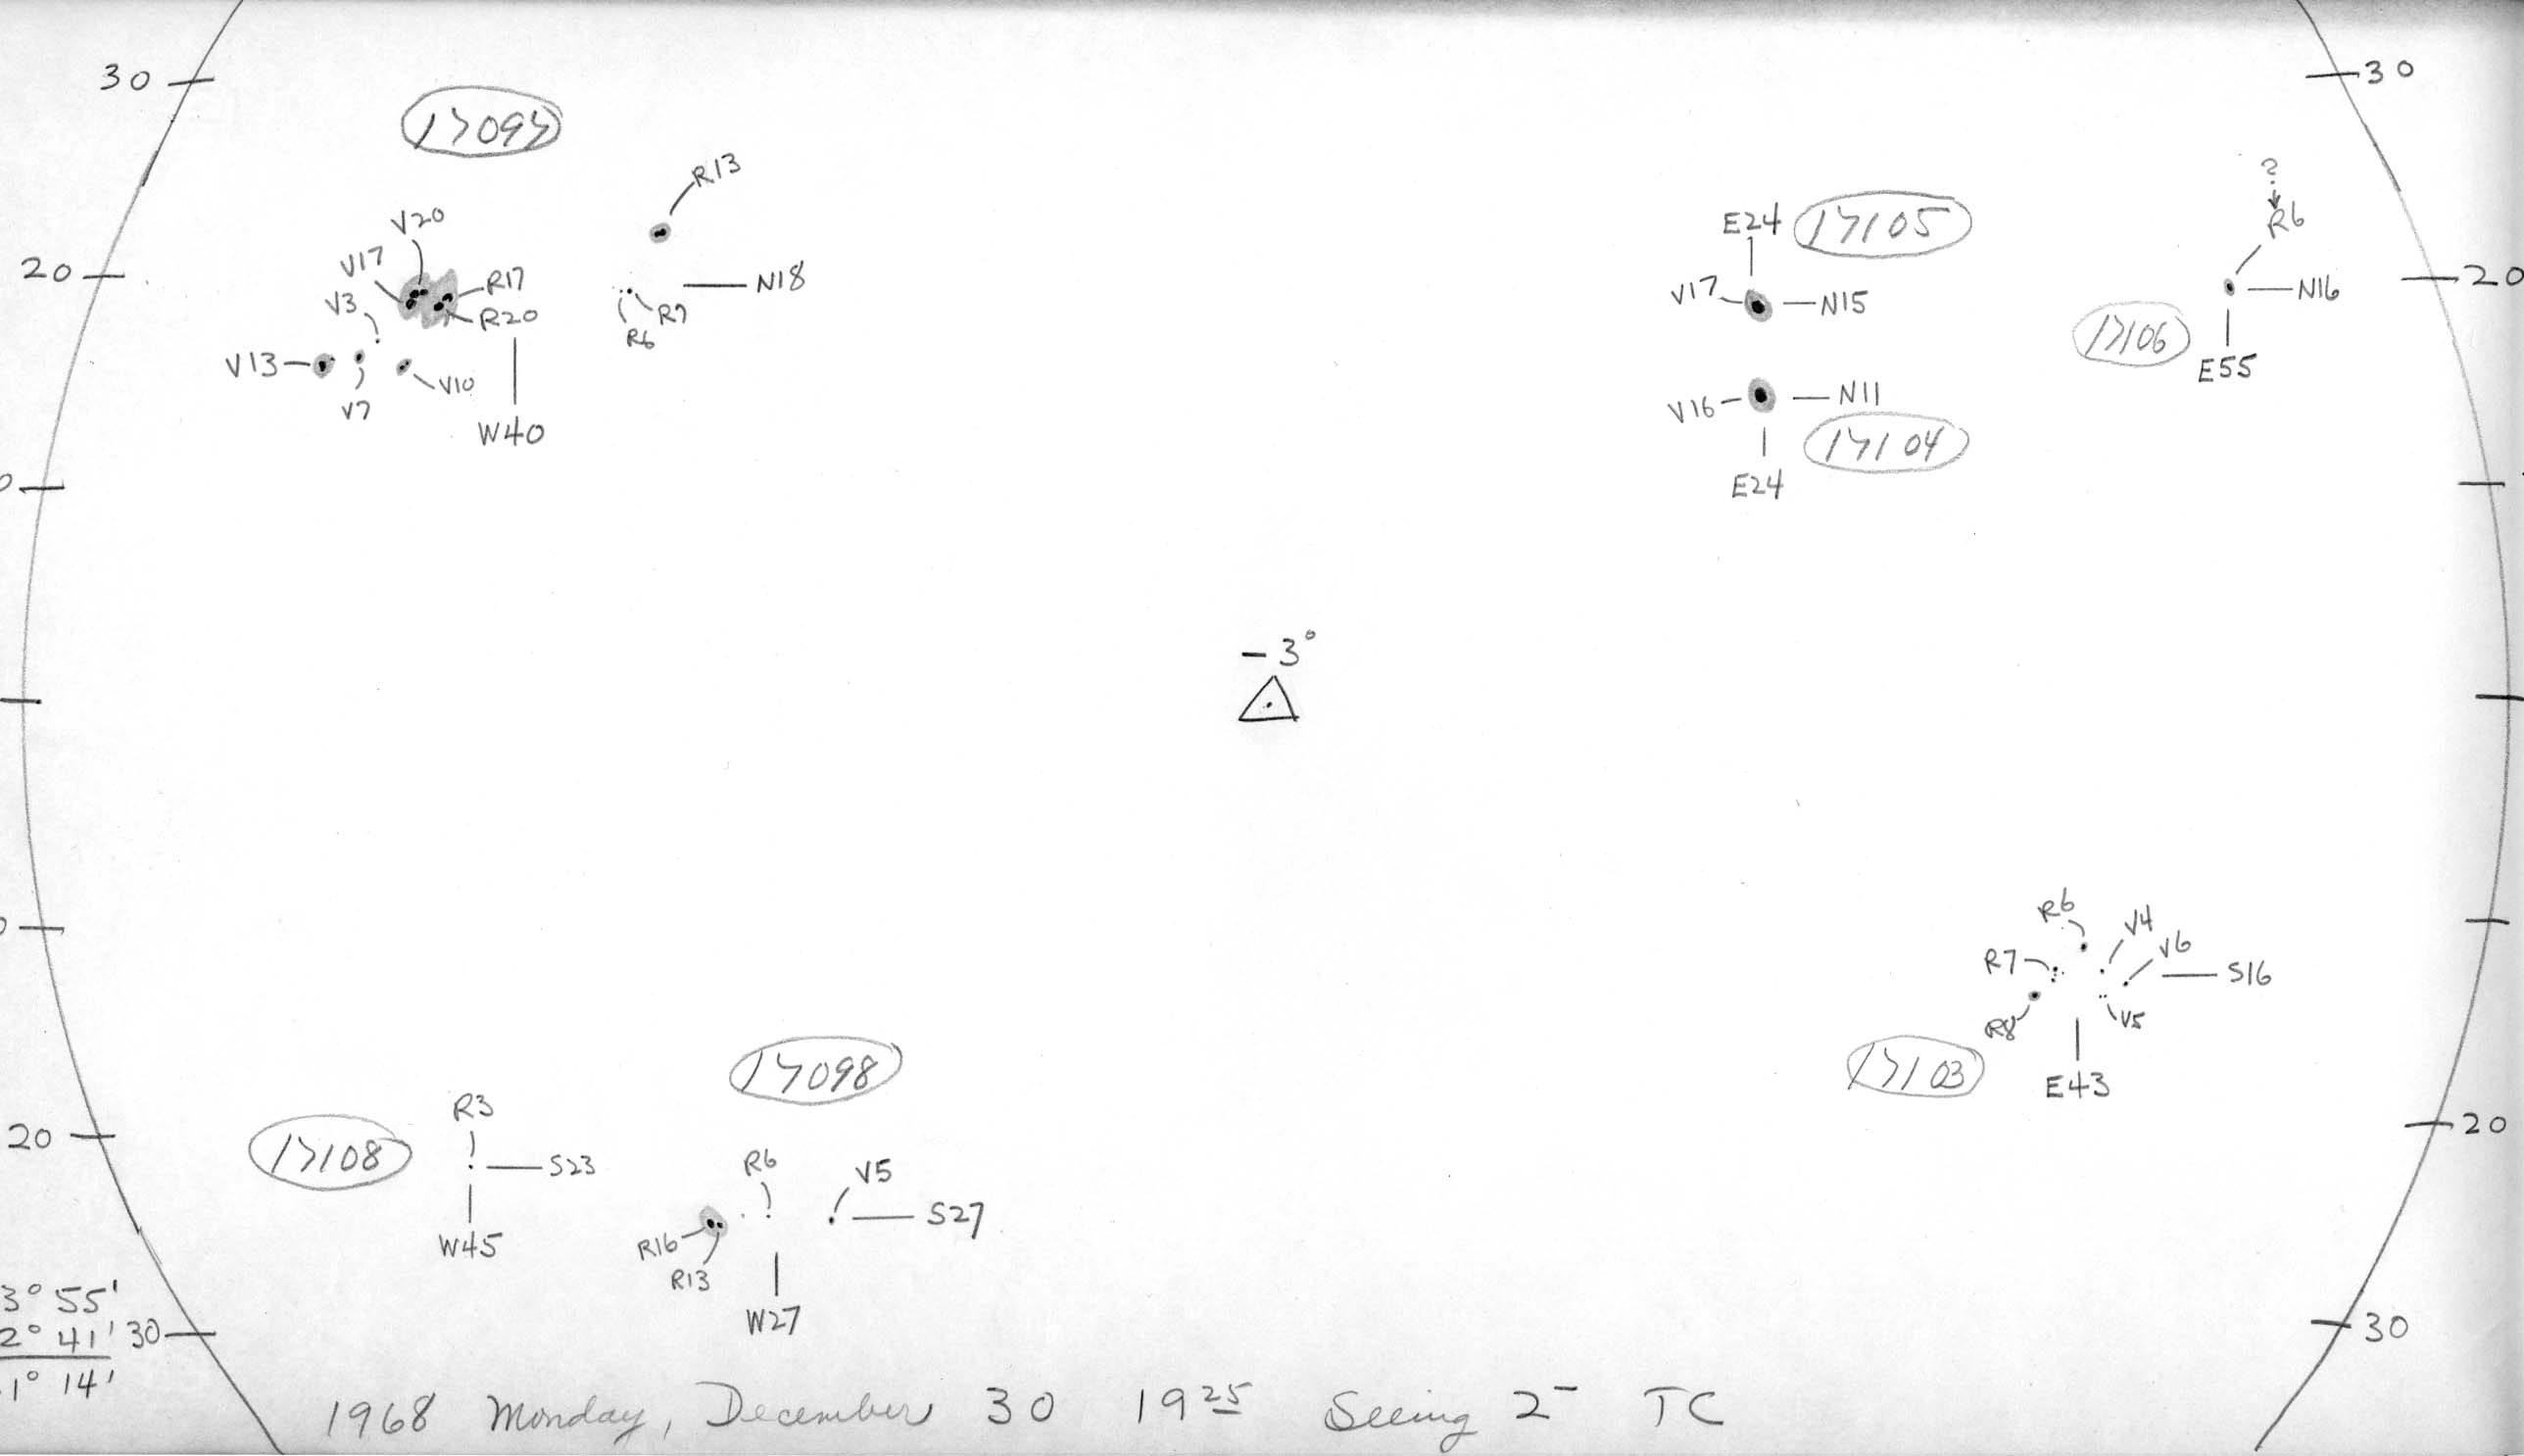 30
30
17097
R13
?
R6
V20
E24
17105
V17
20
R17
N18
V17
N15
N16
20
V3
R20
R7
R6
17106
E55
V13
V10
V7
V16
N11
W40
17104
E24
0
-3°
0
R6
V4
V6
R7
S16
R8
V5
17098
17103
E43
R3
20
20
17108
S23
R6
V5
S27
R16
W45
R13
W27
3° 55'
2° 41'
30
30
1° 14'
1968 Monday, December 30 19 25 Seeing 2- TC